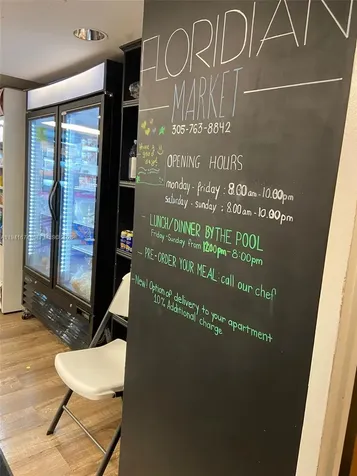 FLORIDIAN
MARKET
305-763-8842
OPENING HOURS
monday - friday : 8:00 am - 10:00pm
saturday - sunday : 8:00 am - 10:00pm
- LUNCH/DINNER BY THE POOL
Friday - Sunday from 12:00pm - 8:00pm
- PRE-ORDER YOUR MEAL: call our chef
- New! Option of delivery to your apartment
10% Additional charge